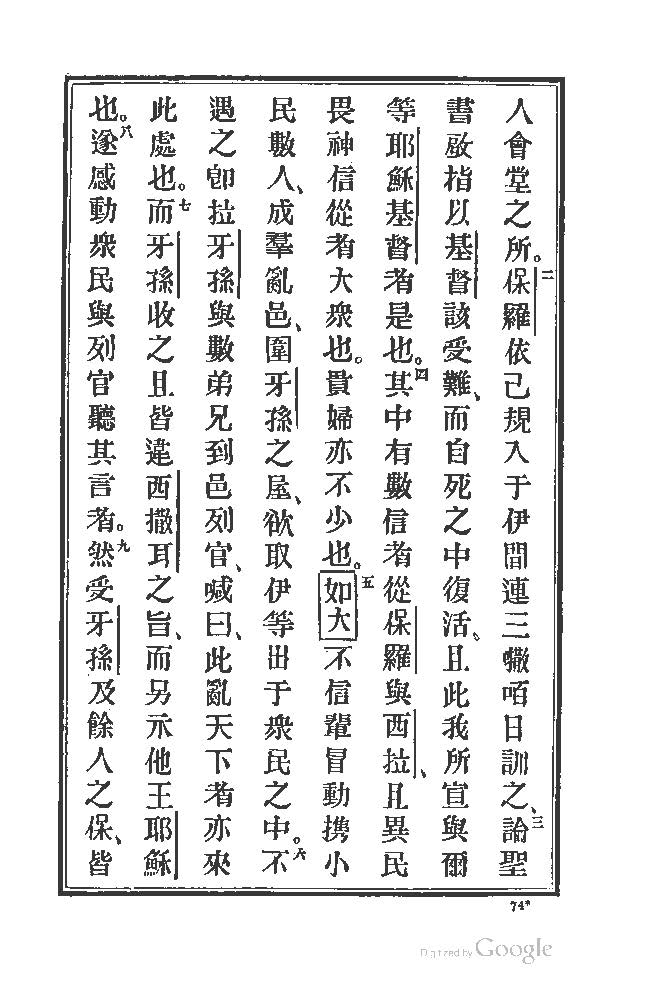 人會堂之所。二保羅依己規入于伊間連三囈咟日訓之、三論聖
書啟指以基督該受難、而自死之中復活、且此我所宣與爾
等耶穌基督者是也。四其中有數信者從保羅與西拉、且異民
畏神信從者大衆也。貴婦亦不少也。五如大不信輩冒動攜小
民數人、成羣亂邑、圍牙孫之屋、欲取伊等出于衆民之中。六不
遇之卽拉牙孫與數弟兄到邑列官、喊曰、此亂天下者亦來
此處也。七而牙孫收之且皆違西撒耳之旨、而另示他王耶穌
也。八遂感動衆民與列官聽其言者。九然受牙孫及餘人之保、皆
74*
Digitized by Google